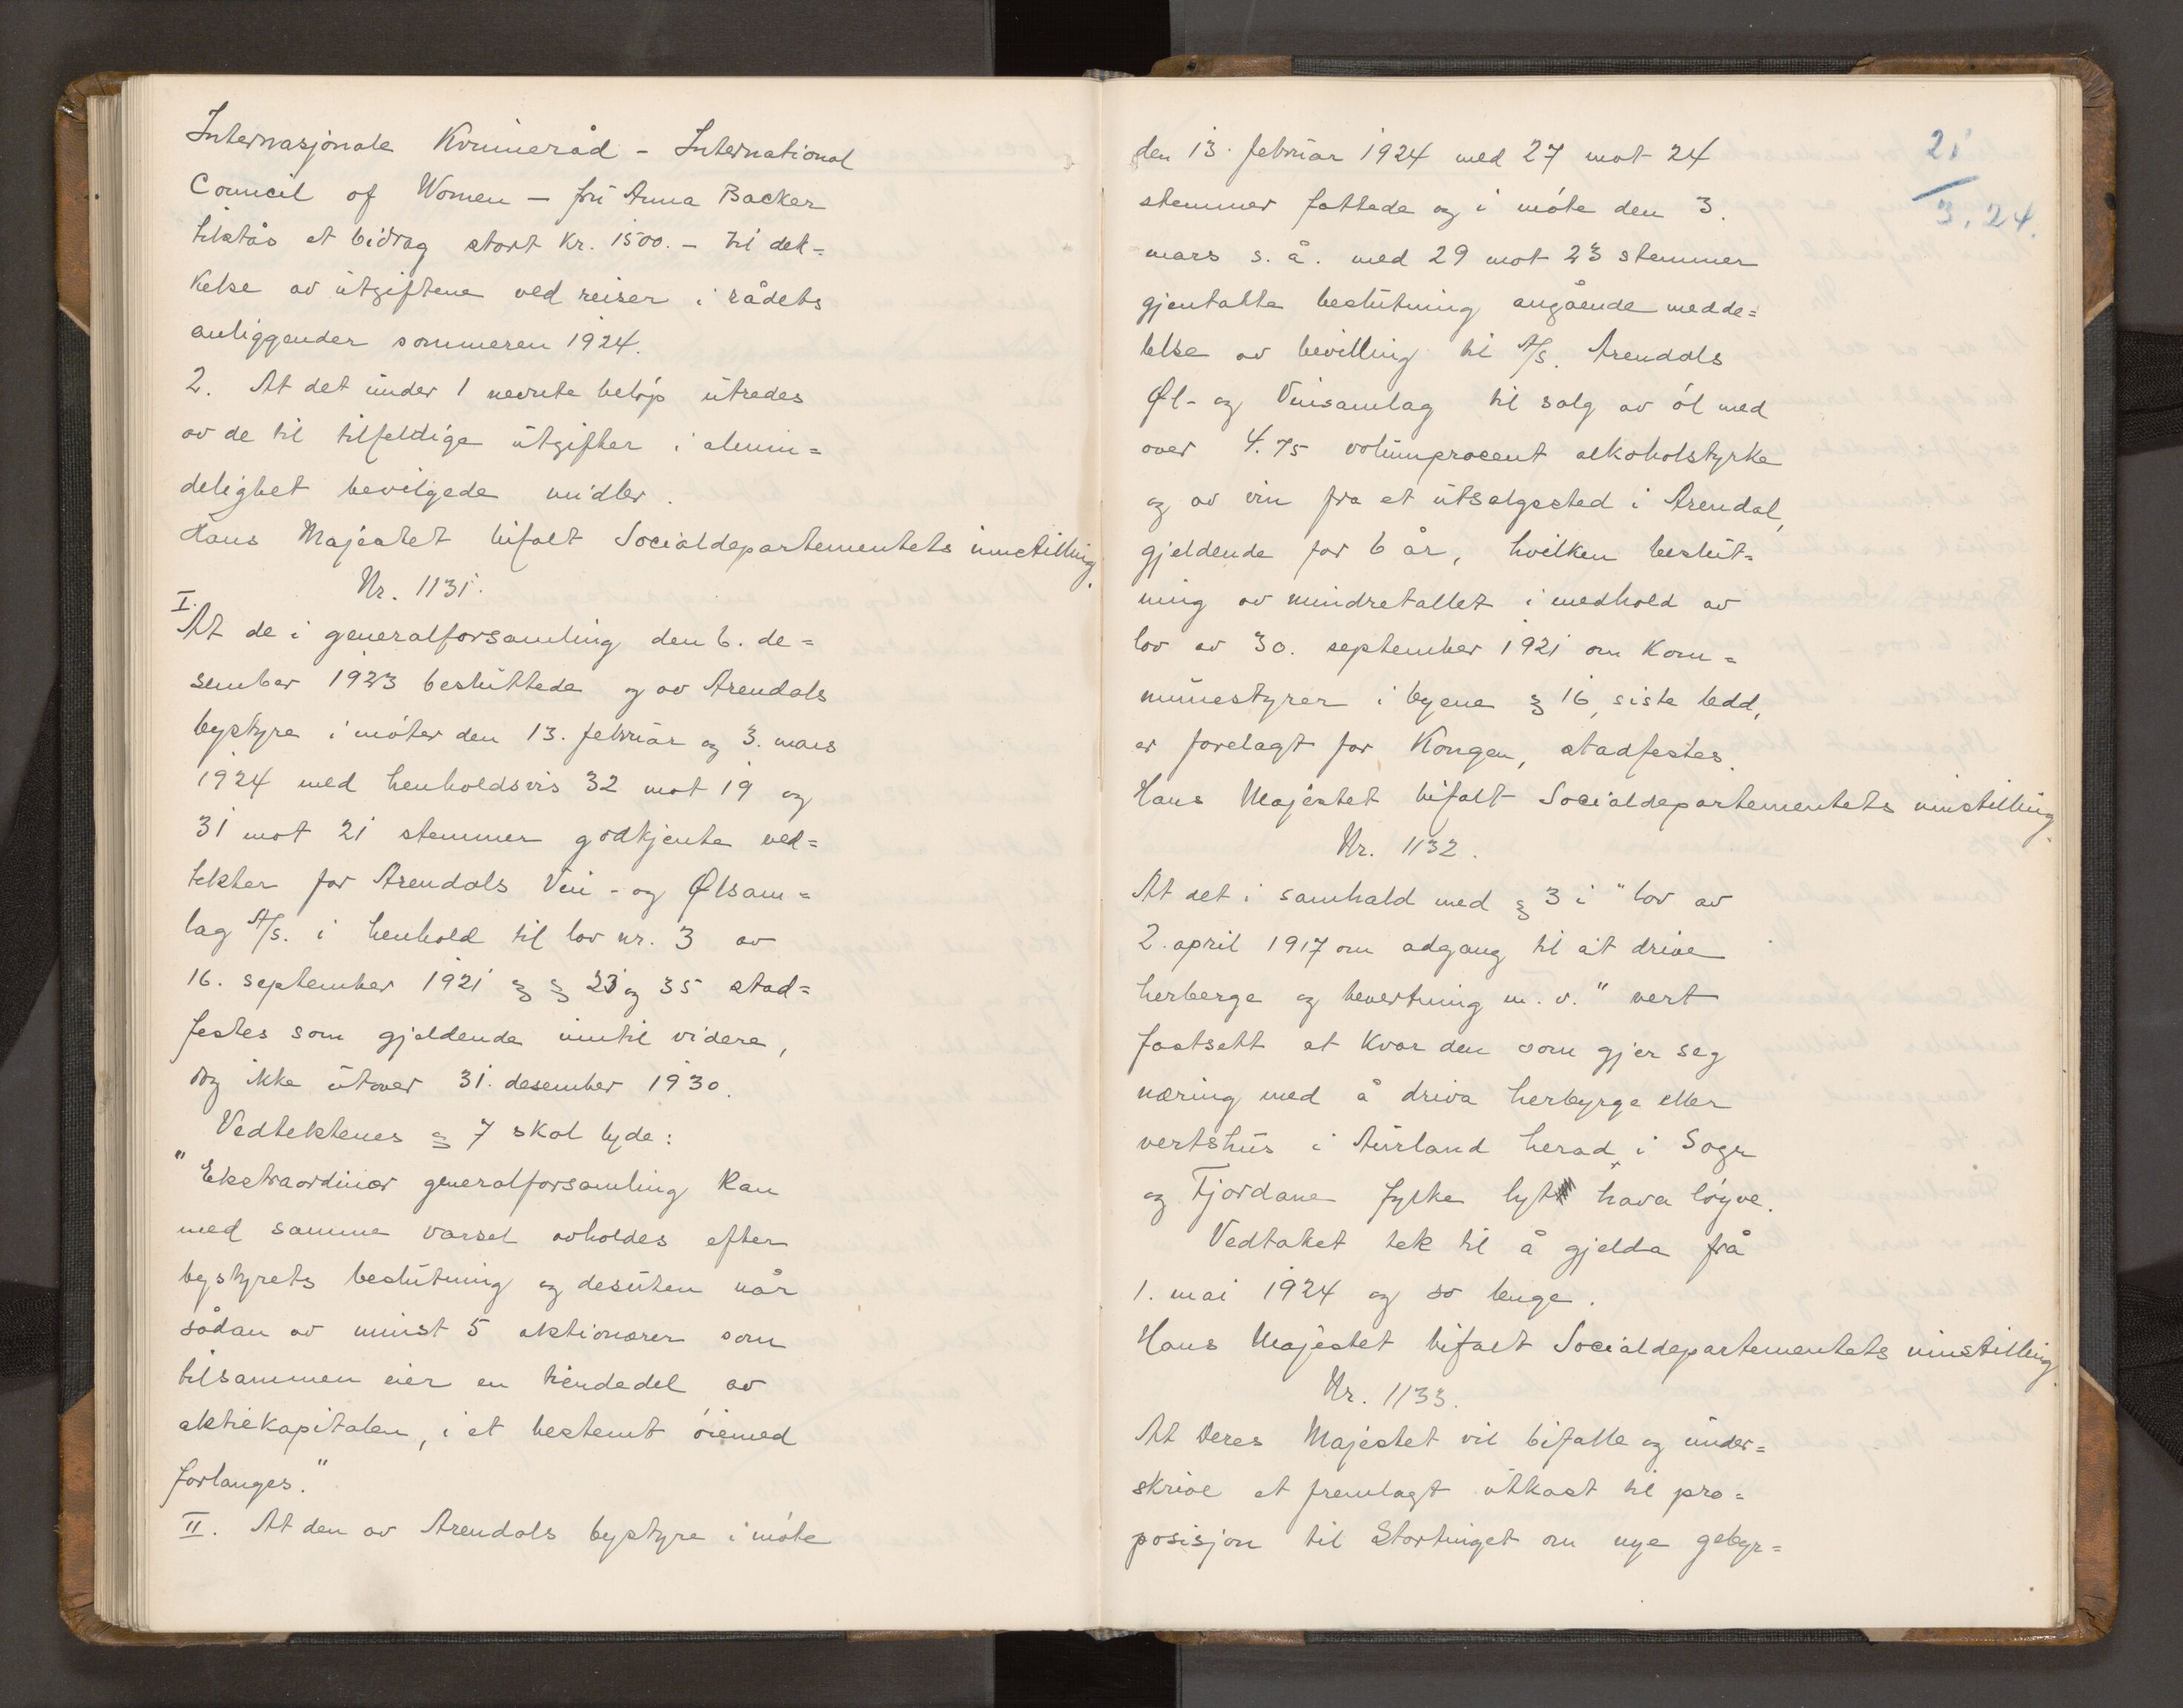 Internasjonale Kvinneråd - International
Council of Women - fru Anna Backer
tilstås et bidrag stort kr. 1500.- til dek=
kelse av utgiftene ved reiser i rådets
anliggender sommeren 1924.
2. At det under 1 nevnte beløp utredes
av de til tilfeldige utgifter i almin=
delighet bevilgede midler.
Hans Majestet bifalt Socialdepartementets innstilling.
Nr. 1131.
I.
At de i generalforsamling den 6. de=
sember 1923 besluttede og av Arendals
bystyre i møter den 13. februar og 3. mars
1924 med henholdsvis 32 mot 19 og
31 mot 21 stemmer godkjente ved=
tekter for Arendals Vin- og Ølsam=
lag A/S. i henhold til lov nr. 3 av
16. september 1921 § § 23 og 35 stad=
festes som gjeldende inntil videre,
dog ikke utover 31. desember 1930.
Vedtektenes § 7 skal lyde:
"Ekstraordinær generalforsamling kan
med samme varsel avholdes efter
bystyrets beslutning og desuten når
sådan av minst 5 aktionærer som
tilsammen eier en tiendedel av
aktiekapitalen, i et bestemt øiemed
forlanges."
II. At den av Arendals bystyre i møte
21/3.24.
den 13. februar 1924 med 27 mot 24
stemmer fattede og i møte den 3.
mars s. å. med 29 mot 23 stemmer
gjentatte beslutning angående medde=
lelse av bevilling til A/S. Arendals
Øl- og Vinsamlag til salg av øl med
over 4.75 volumprocent alkoholstyrke
og av vin fra et utsalgssted i Arendal,
gjeldende for 6 år, hvilken beslut=
ning av mindretallet i medhold av
lov av 30. september 1921 om kom=
munestyrer i byene § 16, siste ledd,
er forelagt for Kongen, stadfestes.
Hans Majestet bifalt Socialdepartementets innstilling.
Nr. 1132.
At det i samhald med § 3 i "lov av
2. april 1917 om adgang til at drive
herberge og bevertning m. v." vert
fastsett at kvar den som gjer seg
næring med å driva herbyrge eller
vertshus i Aurland herad, i Sogn
og Fjordane fylke lyt hava løyve.
Vedtaket tek til å gjelda frå
1. mai 1924 og so lenge.
Hans Majestet bifalt Socialdepartementets innstilling.
Nr. 1133.
At Deres Majestet vil bifalle og under=
skrive et fremlagt utkast til pro=
posisjon til Stortinget om nye gebyr=